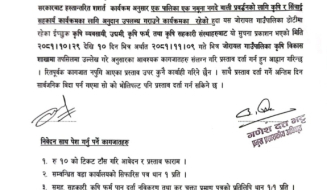 सरकारबाट हस्तान्तरित शशर्त कार्यक्रम अनुसार एक पालिका एक नमुना नगदे बाली प्रर्वद्धनको लागि कृषि र सिंचाई
सहकार्य कार्यक्रमका लागि अनुदान उपलव्ध गराउने कार्यक्रमका रहेको हुदा यस जोरायल गाउँपालिका डोटीमा
रहेका ईच्छुक कृषि व्यवसायी, उधमी, कृषि फर्म, तथा कृषि सहकारी संस्थाहरुबाट यो सुचना प्रकाशन भएको मिति
२०८१।१०।२९ देखि १० दिन भित्र अर्थात २०८१।११।०९ गते भित्र जोरायल गाउँपालिका कृषि विकास
शाखामा तपसिलमा उल्लेख गरे अनुसारका आवश्यक कागजातहरु संलग्न गरि प्रस्ताव दर्ता गर्न हुन आह्वान गरिन्छ
। रितपूर्वक कागजात नपुगि आएका प्रस्ताव उपर कुनै कार्वाही गरिने छैन । साथै प्रस्ताव दर्ता गर्ने अन्तिम दिन
सार्वजनिक विदा पर्न गएमा सो को भोलिपल्ट पनि प्रस्ताव दर्ता गर्न सकिने छ ।
गणेश दत्त भट्ट
प्रमुख प्रशासकीय अधिकृत
निवेदन साथ पेश गर्नु पर्ने कागजातहरु
१. रु १० को टिकट टाँस गरि आवेदन र प्रस्ताव फाराम ।
२. सम्वन्धित वडा कार्यालयको सिफारिस पत्र थान १ प्रति ।
३. समूह सहकारी कृषि फर्म दर्ता नविकरण तथा कर चुक्ता प्रमाण पत्रको प्रतिलिपि थान १/१ प्रति ।